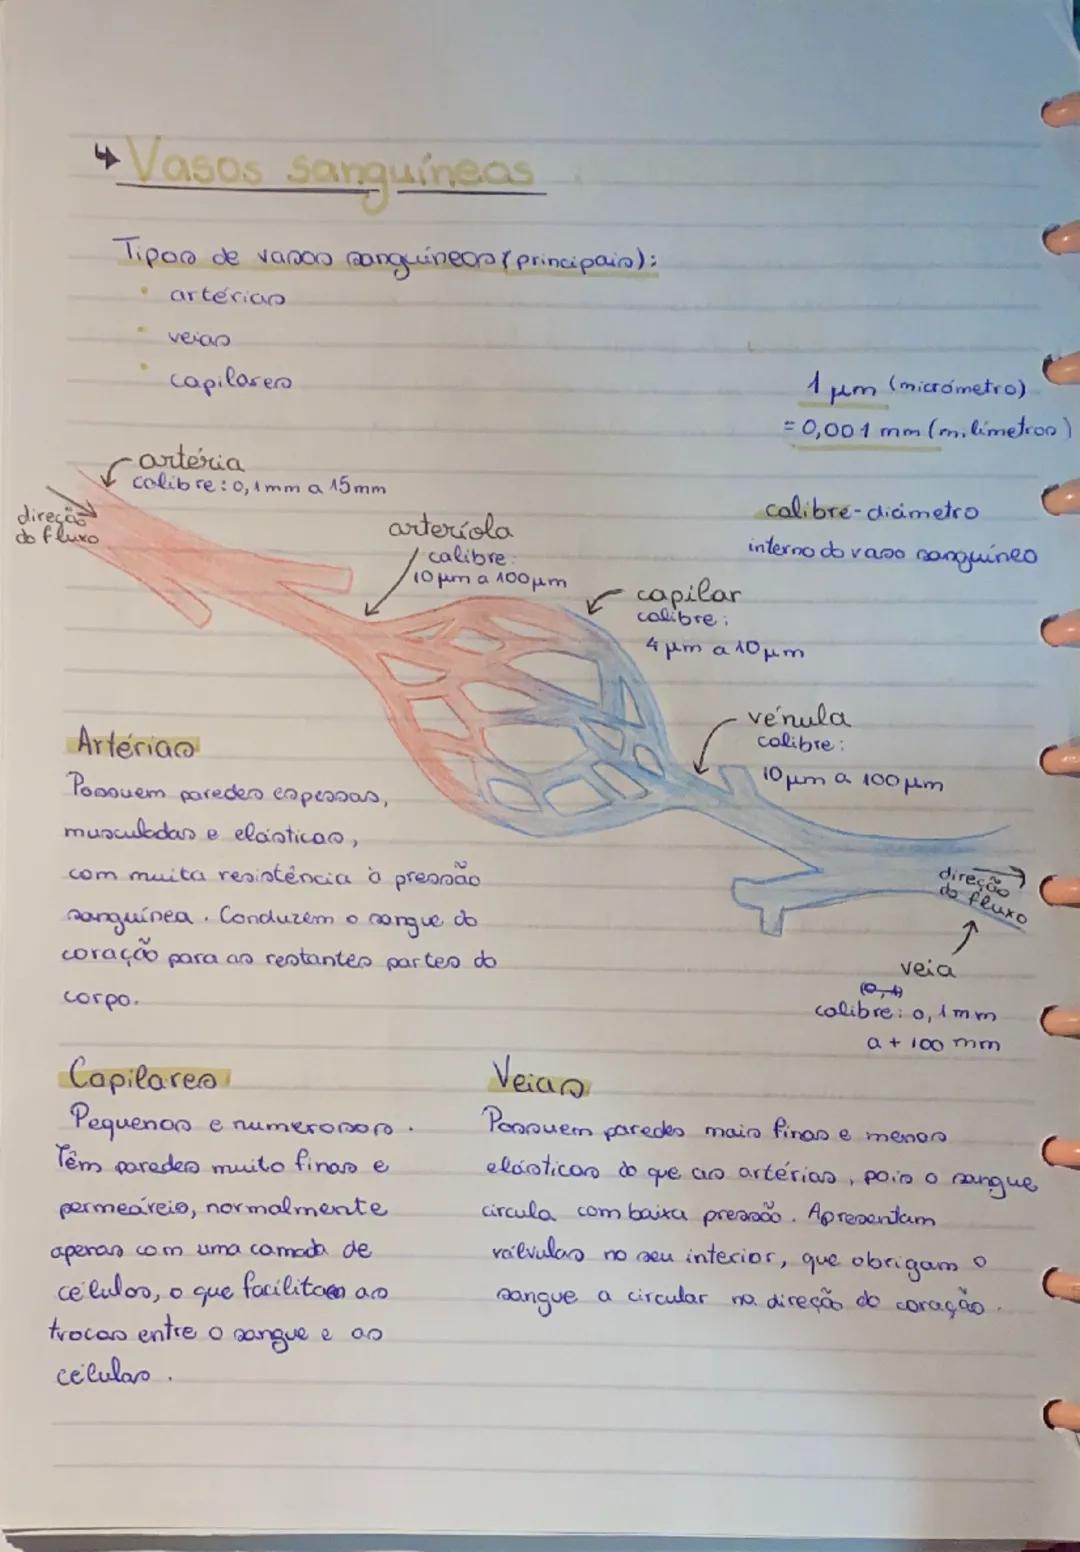 ↳ Vasos sanguíneos
Tipos de vasos sanguíneos (principais):
• artérias
• veias
• capilares
1 µm (micrómetro)
= 0,001 mm (milímetros)
artéria
calibre: 0,1mm a 15mm
direção
do fluxo
calibre - diâmetro
interno do vaso sanguíneo
arteríola
calibre:
10 µm a 100 µm
capilar
calibre:
4 µm a 10 µm
vénula
calibre:
10 µm a 100 µm
direção
do fluxo
veia
(0,1)
calibre: 0,1mm
a + 100 mm
Artérias
Possuem paredes espessas,
musculadas e elásticas,
com muita resistência à pressão
sanguínea. Conduzem o sangue do
coração para as restantes partes do
corpo.
Capilares
Pequenos e numerosos.
Têm paredes muito finas e
permeáveis, normalmente
apenas com uma camada de
células, o que facilita as
trocas entre o sangue e as
células.
Veias
Possuem paredes mais finas e menos
elásticas do que as artérias, pois o sangue
circula com baixa pressão. Apresentam
válvulas no seu interior, que obrigam o
sangue a circular na direção do coração.